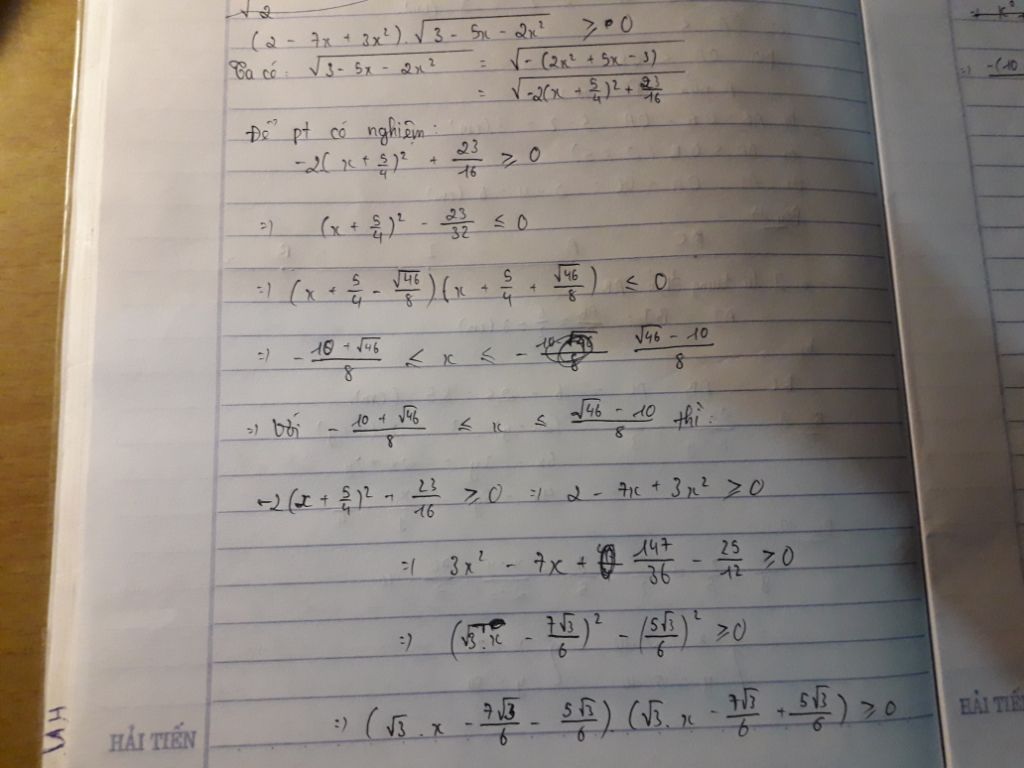 √2
(2 - 7x + 3x²).√(3 - 5x - 2x²) ≥ 0
Ta có: √(3 - 5x - 2x²) = √(-(2x² + 5x - 3))
= √(-2(x + 5/4)² + 23/16)
Để pt có nghiệm:
-2(x + 5/4)² + 23/16 ≥ 0
=> (x + 5/4)² - 23/32 ≤ 0
=> (x + 5/4 - √46/8)(x + 5/4 + √46/8) ≤ 0
=> - (10 + √46)/8 ≤ x ≤ (√46 - 10)/8
=> Với - (10 + √46)/8 ≤ x ≤ (√46 - 10)/8 thì:
-2(x + 5/4)² - 23/16 ≥ 0 => 2 - 7x + 3x² ≥ 0
=> 3x² - 7x + 147/36 - 25/12 ≥ 0
=> (√3.x - 7√3/6)² - (5√3/6)² ≥ 0
=> (√3.x - 7√3/6 - 5√3/6)(√3.x - 7√3/6 + 5√3/6) ≥ 0
HẢI TIẾN